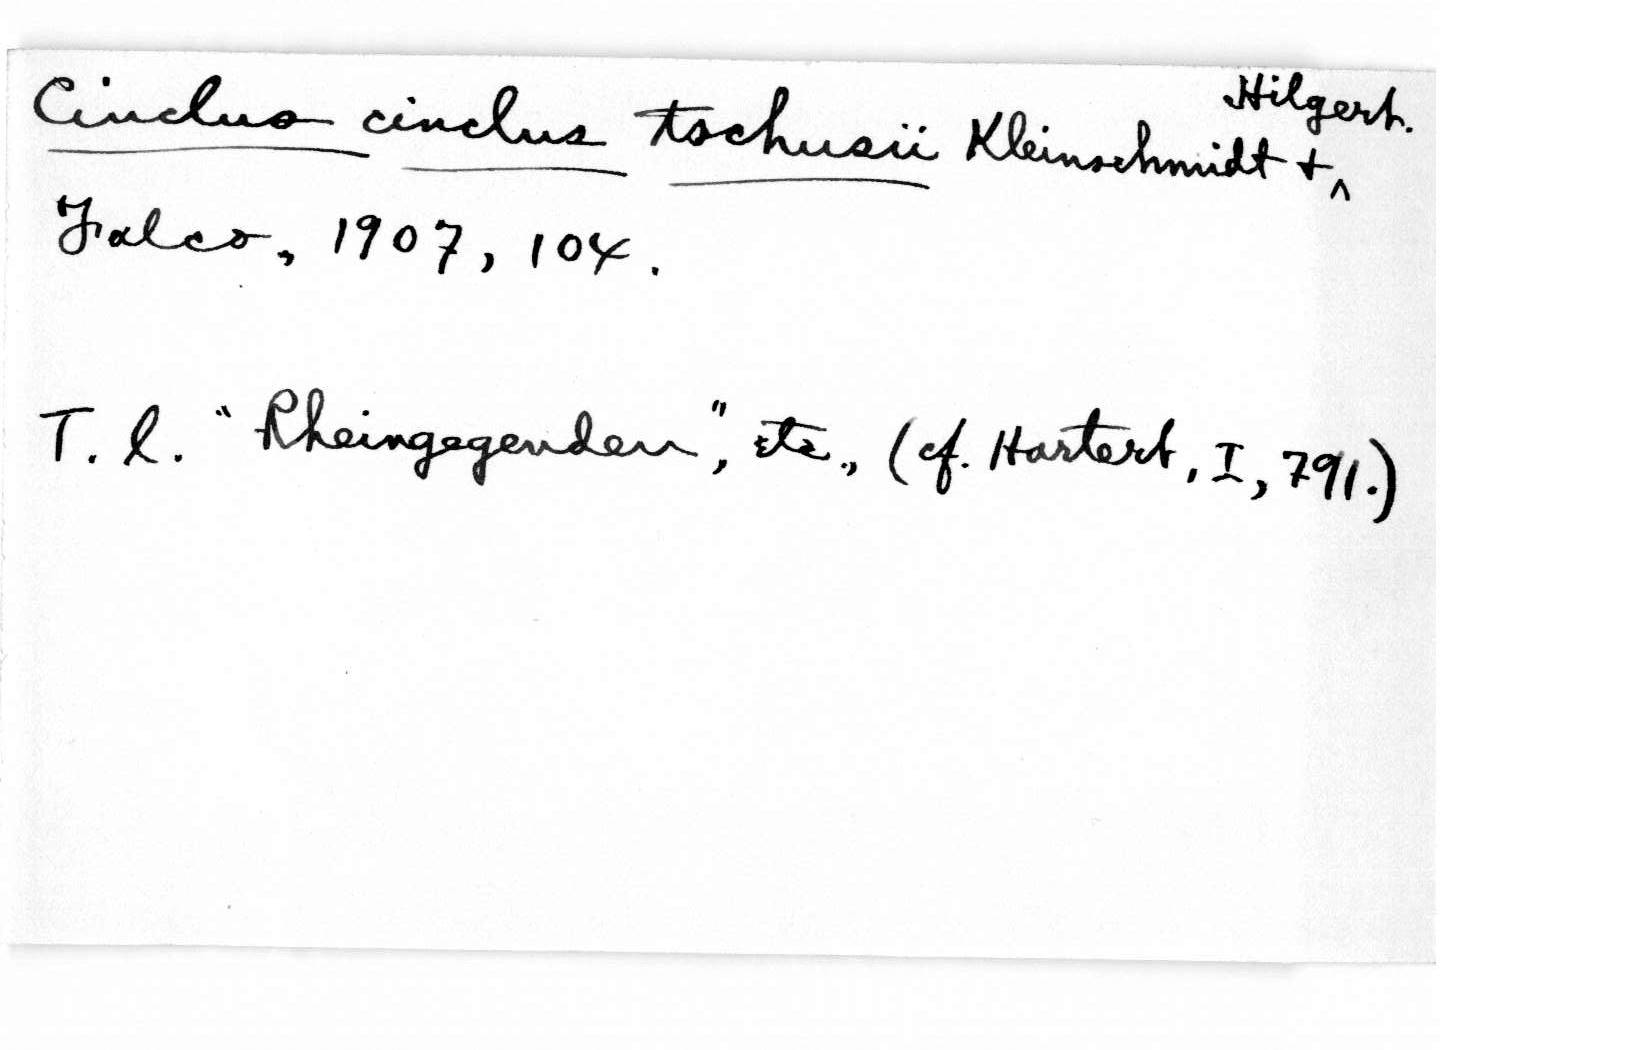 Cinclus cinclus tschusii Kleinschmidt + Hilgert.
Falco, 1907, 104.
T. l. "Rheingegenden", etc., (cf. Hartert, I, 791.)